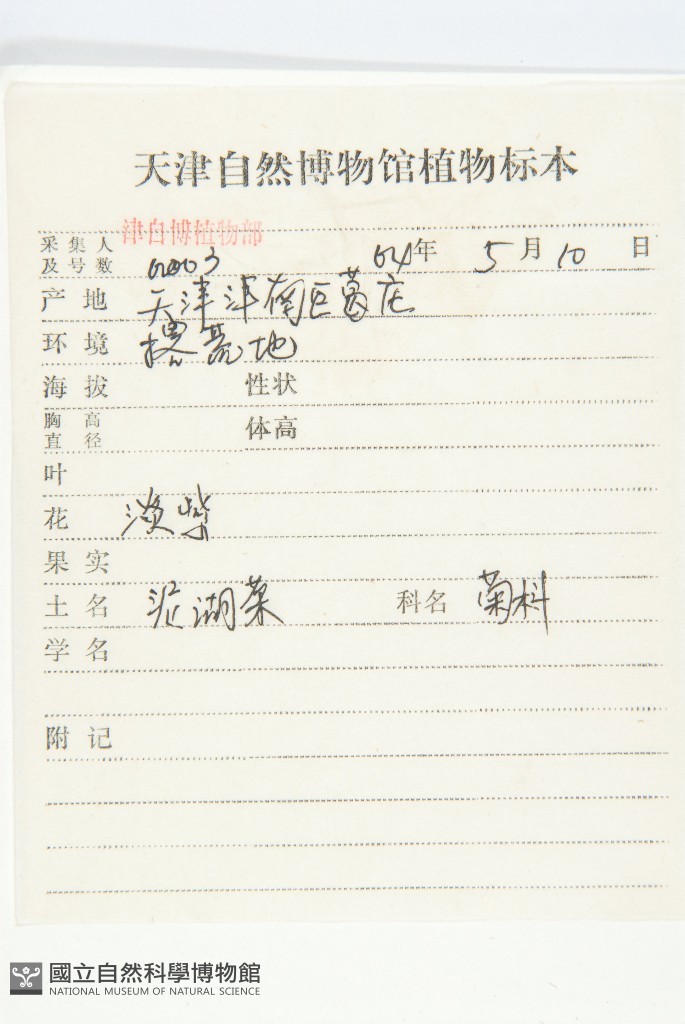 天津自然博物馆植物标本
采集人 津自博植物部
及号数 04003 04年 5月10日
产地 天津津南区葛庄
环境 撂荒地
海拔 性状
胸高
直径 体高
叶
花 淡紫
果实
土名 泥湖菜 科名 菊科
学名
附记
國立自然科學博物館
NATIONAL MUSEUM OF NATURAL SCIENCE